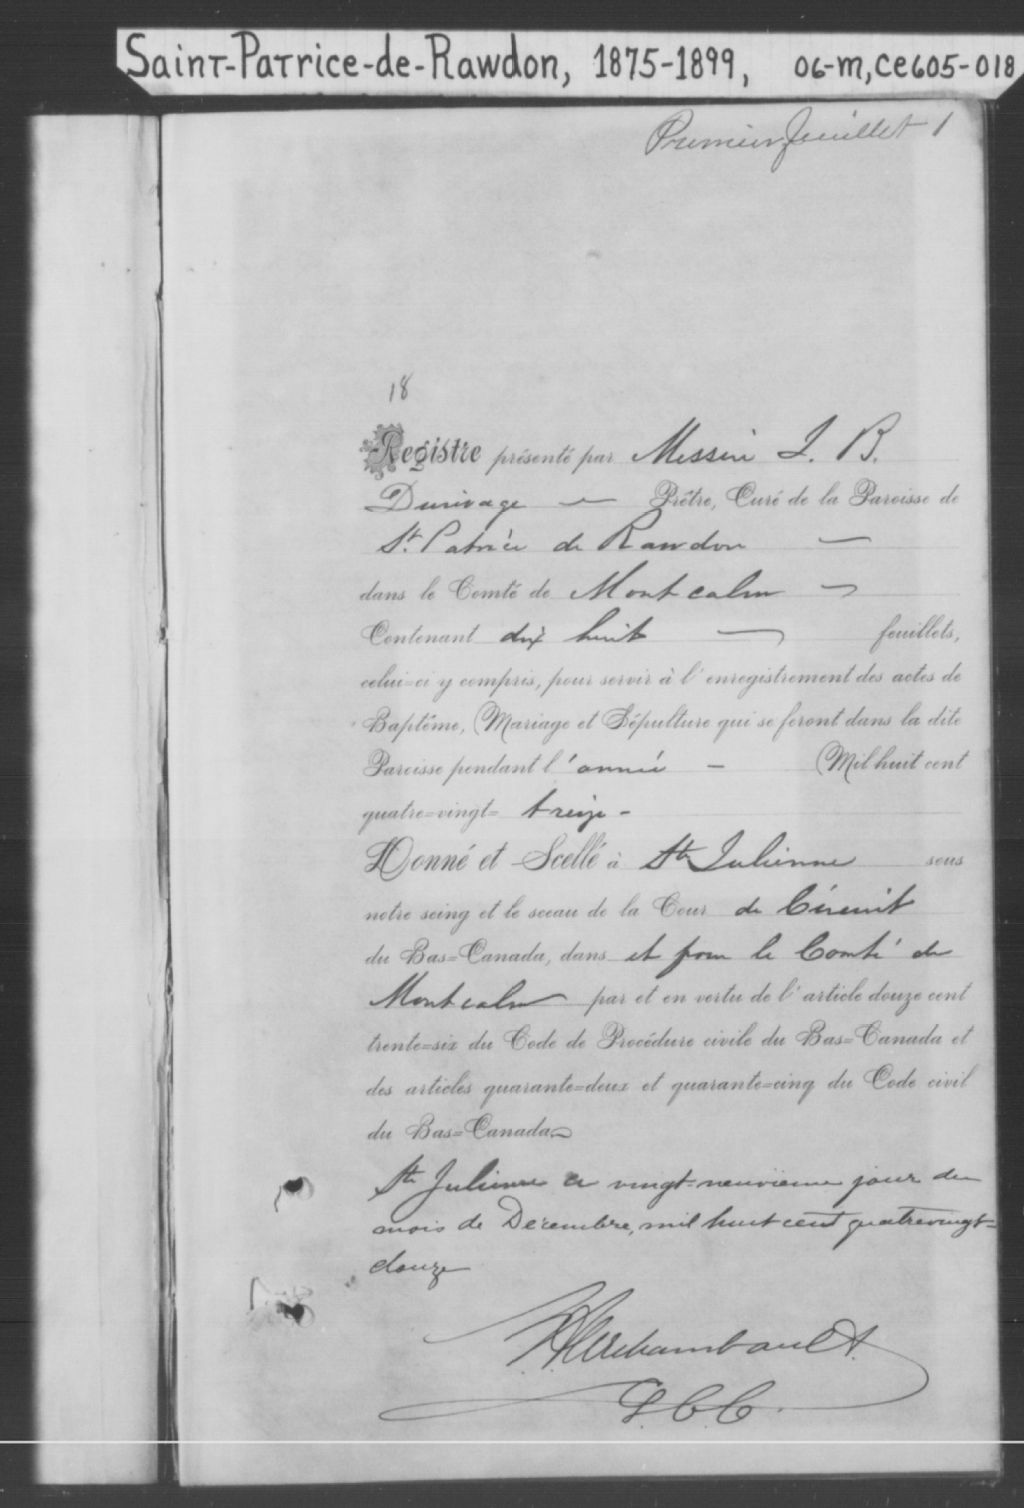 Saint-Patrice-de-Rawdon, 1875-1899, 06-M, CE605-018
Premier feuillet 1
18
Registre présenté par Messire J. B.
Durivage Prêtre, Curé de la Paroisse de
St. Patrice de Rawdon
dans le Comté de Montcalm
Contenant dix huit feuillets,
celui=ci y compris, pour servir à l'enregistrement des actes de
Baptême, Mariage et Sépulture qui se feront dans la dite
Paroisse pendant l'année - Mil huit cent
quatre=vingt= treize -
Donné et Scellé à Ste Julienne sous
notre seing et le sceau de la Cour de Circuit
du Bas=Canada, dans et pour le Comté de
Montcalm par et en vertu de l'article douze cent
trente=six du Code de Procédure civile du Bas=Canada et
des articles quarante=deux et quarante=cinq du Code civil
du Bas=Canada
Ste Julienne ce vingt-neuvième jour du
mois de Décembre, mil huit cent quatrevingt=
douze
Archambault
G.C.C.